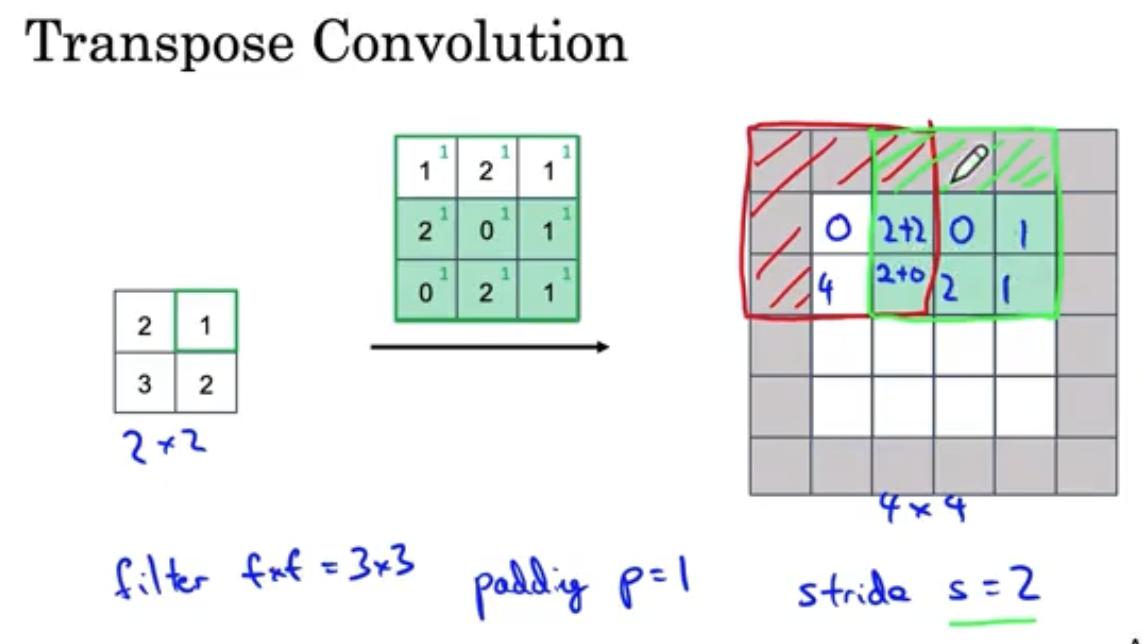 Transpose Convolution
1 1 2 1 1 1
2 1 0 1 1 1
0 1 2 1 1 1
2 1
3 2
2 × 2
0 2+2 0 1
4 2+0 2 1
4 × 4
filter f×f = 3×3 paddig p=1 stride s = 2